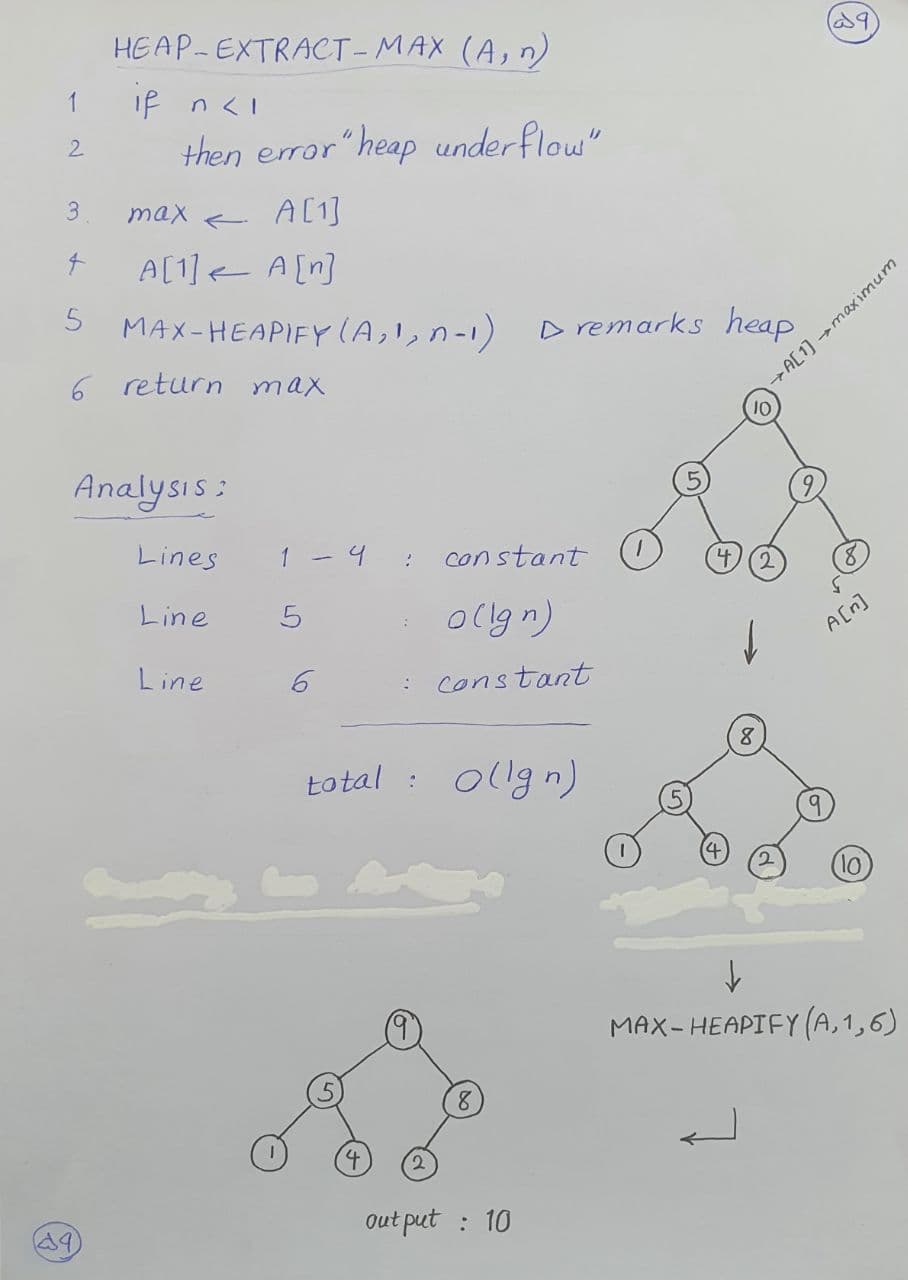 HEAP-EXTRACT-MAX (A, n)
1 if n < 1
2 then error "heap underflow"
3. max ← A[1]
4 A[1] ← A[n]
5 MAX-HEAPIFY (A, 1, n-1) ▷ remarks heap
6 return max
→ A[1] → maximum
10
5 9
1 4 2 8
A[n]
↓
Analysis:
Lines 1 - 4 : constant
Line 5 : O(lg n)
Line 6 : constant
total : O(lg n)
8
5 9
1 4 2 10
↓
MAX-HEAPIFY (A, 1, 6)
9
5 8
1 4 2
output : 10